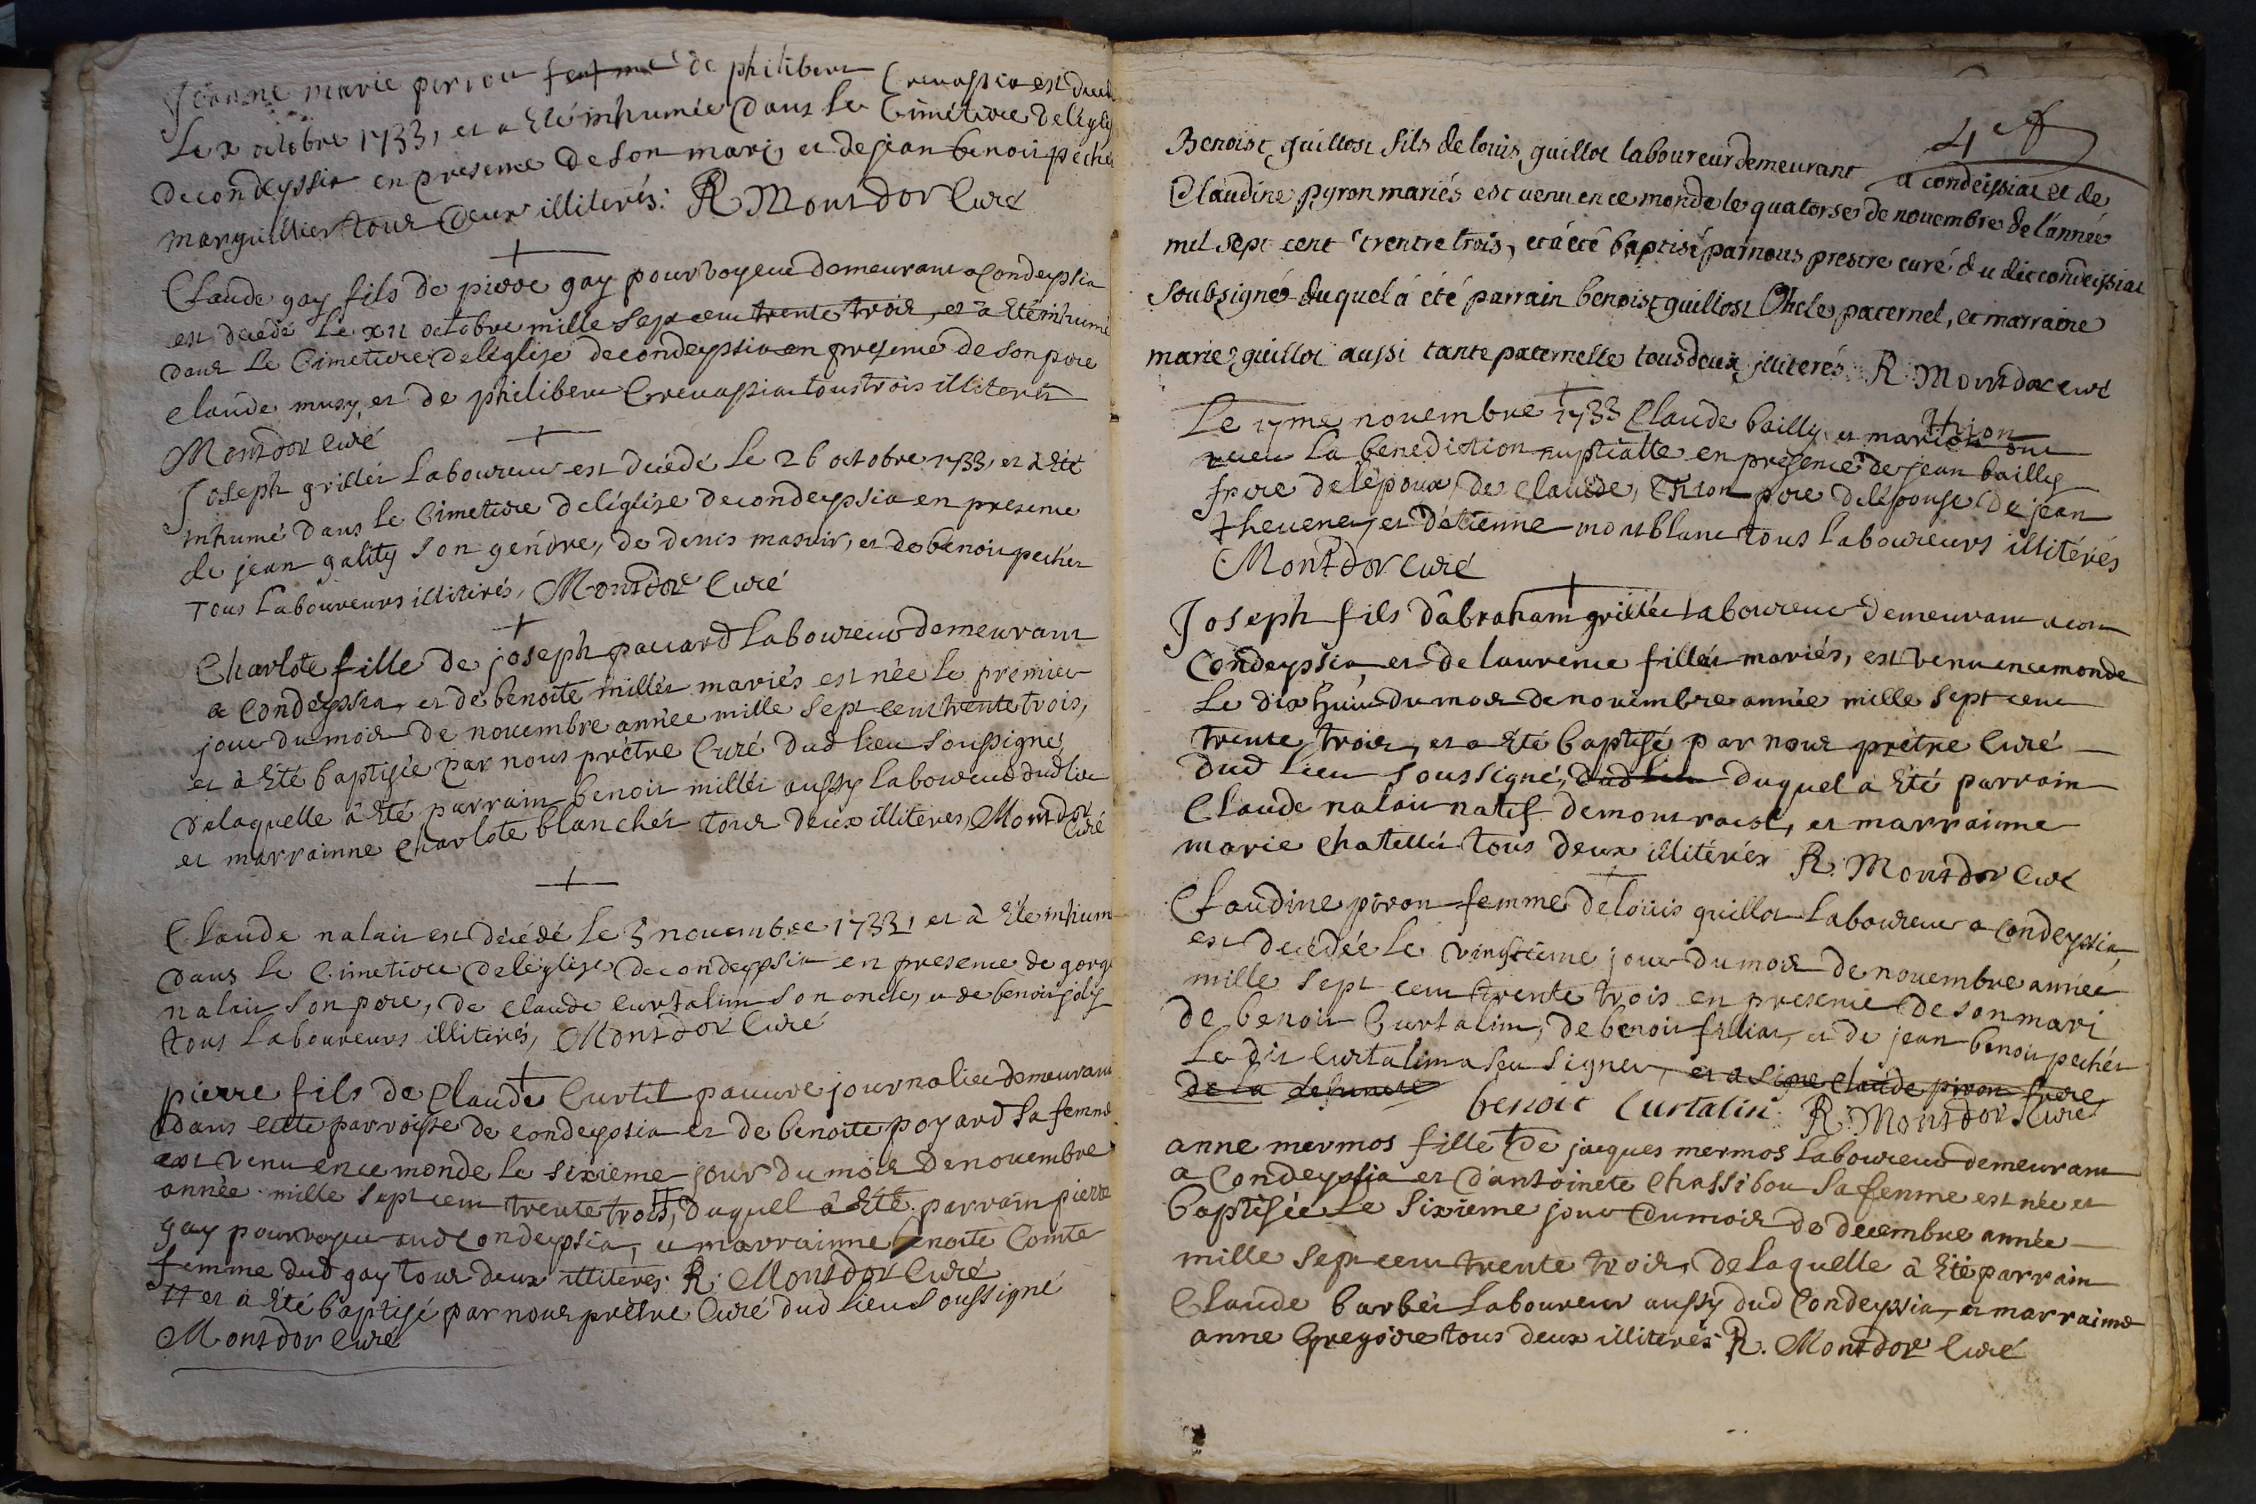 Jeanne marie piriou femme de philibert Crevassia est decedee
Le x octobre 1733, et a Eté inhumée Dans le Cimétiere de l'eglise
de condeyssia en presence de son mari, et de jean benoit pechés
marguillier tour deux illiterés: R Montdor Curé
Claude gay fils de pierre gay pourvoyeur demeurant a Condeyssia
est decedé Le xii octobre mille sept cent trente trois, et a Eté inhumé
dans Le Cimetiere de l'église de condeyssia en presence de son pere
claude musy, et de philibert Crevassia tous trois illiterés
Montdor curé
Joseph grillés Laboureur est décédé Le 26 octobre 1733, et a Eté
inhumé dans le Cimetiere de l'église de condeyssia en presence
de jean gality son gendre, de denis masuir, et de benoit pechés
Tous Laboureurs illiterés, Montdor Curé
Charlote fille de joseph paccard Laboureur demeurant
a Condeyssia, et de benoite millés mariés est née le premier
jour du mois de novembre année mille sept cent trente trois,
et à Eté baptisée par nous prêtre Curé dud lieu soussigné,
de laquelle à Eté parrain benoit millés aussy laboureur dud lieu
et marrainne charlote blanchés tous deux illiteres, Montdor
Curé
Claude nalait est décédé le 3 novembre 1733, et à Eté inhum
dans le Cimetiere de l'eglise de condeyssia en presence de gorge
nalait son pere, de claude curtalin son oncle, et de benoit joly
tous Laboureurs illiterés, Montdor Curé
pierre fils de Claude Curtil pauvre journalier demeurant
dans cette parroisse de condeyssia et de benoite poyard sa femme
est venu en ce monde le sixieme jour du mois de novembre
année mille sept cent trente trois, # duquel à Eté parrain pierre
gay pourvoyeur aud Condeyssia, et marrainne benoite Comte
femme dud gay tour deux illiteres. R. Montdor Curé
# et à Eté baptisé par nous prêtre Curé dud lieu soussigné
Montdor Curé
4
Benoist guillost fils de louis guillot laboureur demeurant a condeissiat et de
Claudine pyron mariés est venu en ce monde le quatorse de novembre de l'année
mil sept cent trentre trois, et á été baptisé par nous prestre curé du dit condeissiat
soubsigné duquel á été parrain benoist guillost Oncle paternel, et marraine
marie guillot aussi tante paternelle tous deux illiterés. R. Montdor curé
Le 17me novembre 1733 Claude bailly et marie thion ont
receu La benediction nuptialle en presence de jean bailly
frere de l'époux, de claude, thion pere de l'épouse de jean
thevenet, et d'étienne montblanc tous laboureurs illitérés
Montdor curé
Joseph fils d'abraham grillés laboureur demeurant a con
Condeyssia, et de laurence fillés mariés, est venu en ce monde
Le dix huit du mois de novembre année mille sept cent
trente trois, et a Eté baptisé par nous prêtre Curé
dud lieu soussigné, dud lieu duquel a Eté parrain
Claude nalait natif de montracol, et marrainne
marie chatellés tous deux illitérés R. Montdor Curé
Claudine piron femme de loüis guillot Laboureur a Condeyssia,
est decedée le vingtieme jour du mois de novembre année
mille sept cent trente trois en presence de son mari
de benoit Curtalin, de benoit filliat, et de jean benoit pechés
Le dit curtalin a sçeu signer, et a signe claude piron frere
de la defuncte benoit Curtalin. R. Montdor Curé
anne mermos fille de jacques mermos Laboureur demeurant
a Condeyssia et d'antoinete chassibou sa femme est née et
baptisée Le sixieme jour du mois de decembre année
mille sept cent trente trois, de laquelle à Eté parrain
Claude barbés Laboureur aussy dud Condeyssia, et marraine
anne Gregoire tous deux illiterés R. Montdor Curé